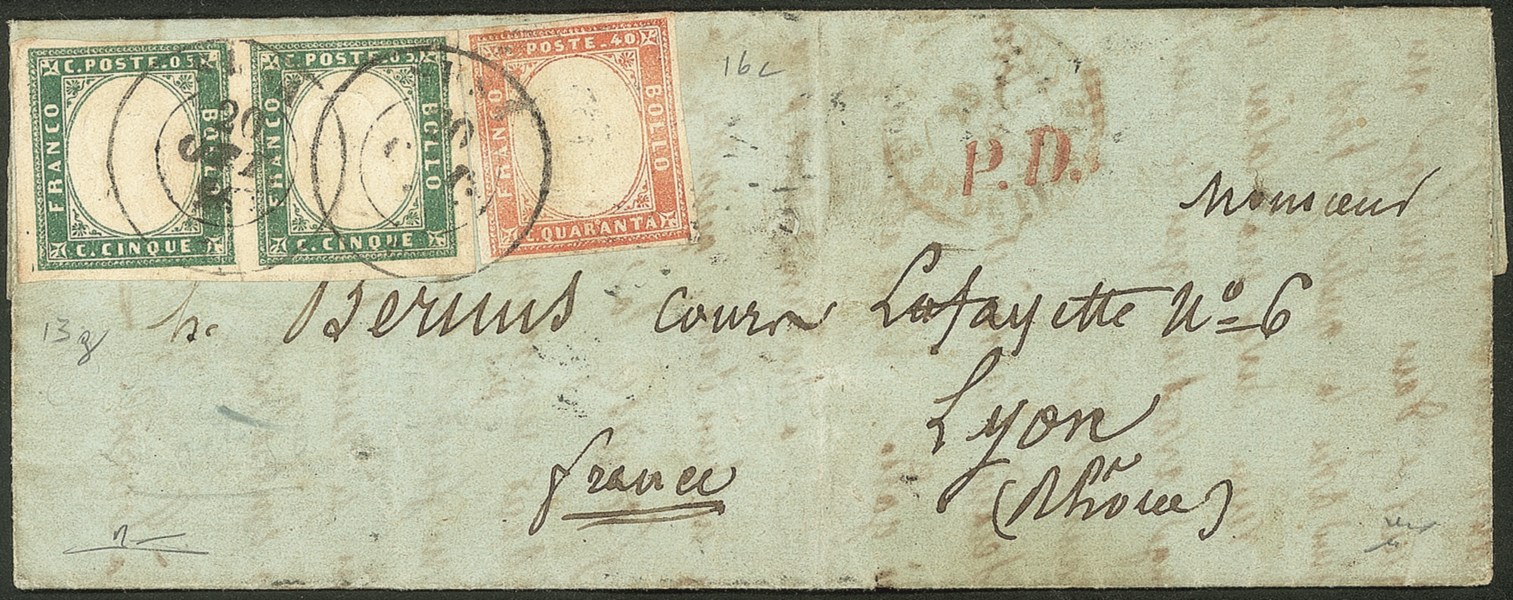 C. POSTE. 05
FRANCO
BOLLO
C. CINQUE
C. POSTE. 05
FRANCO
BOLLO
C. CINQUE
C. POSTE. 40
FRANCO
BOLLO
C. QUARANTA
20
16c
P.D.
Monsieur
h. Bernus cours Lafayette No 6
13g
Lyon
france
(Rhône)